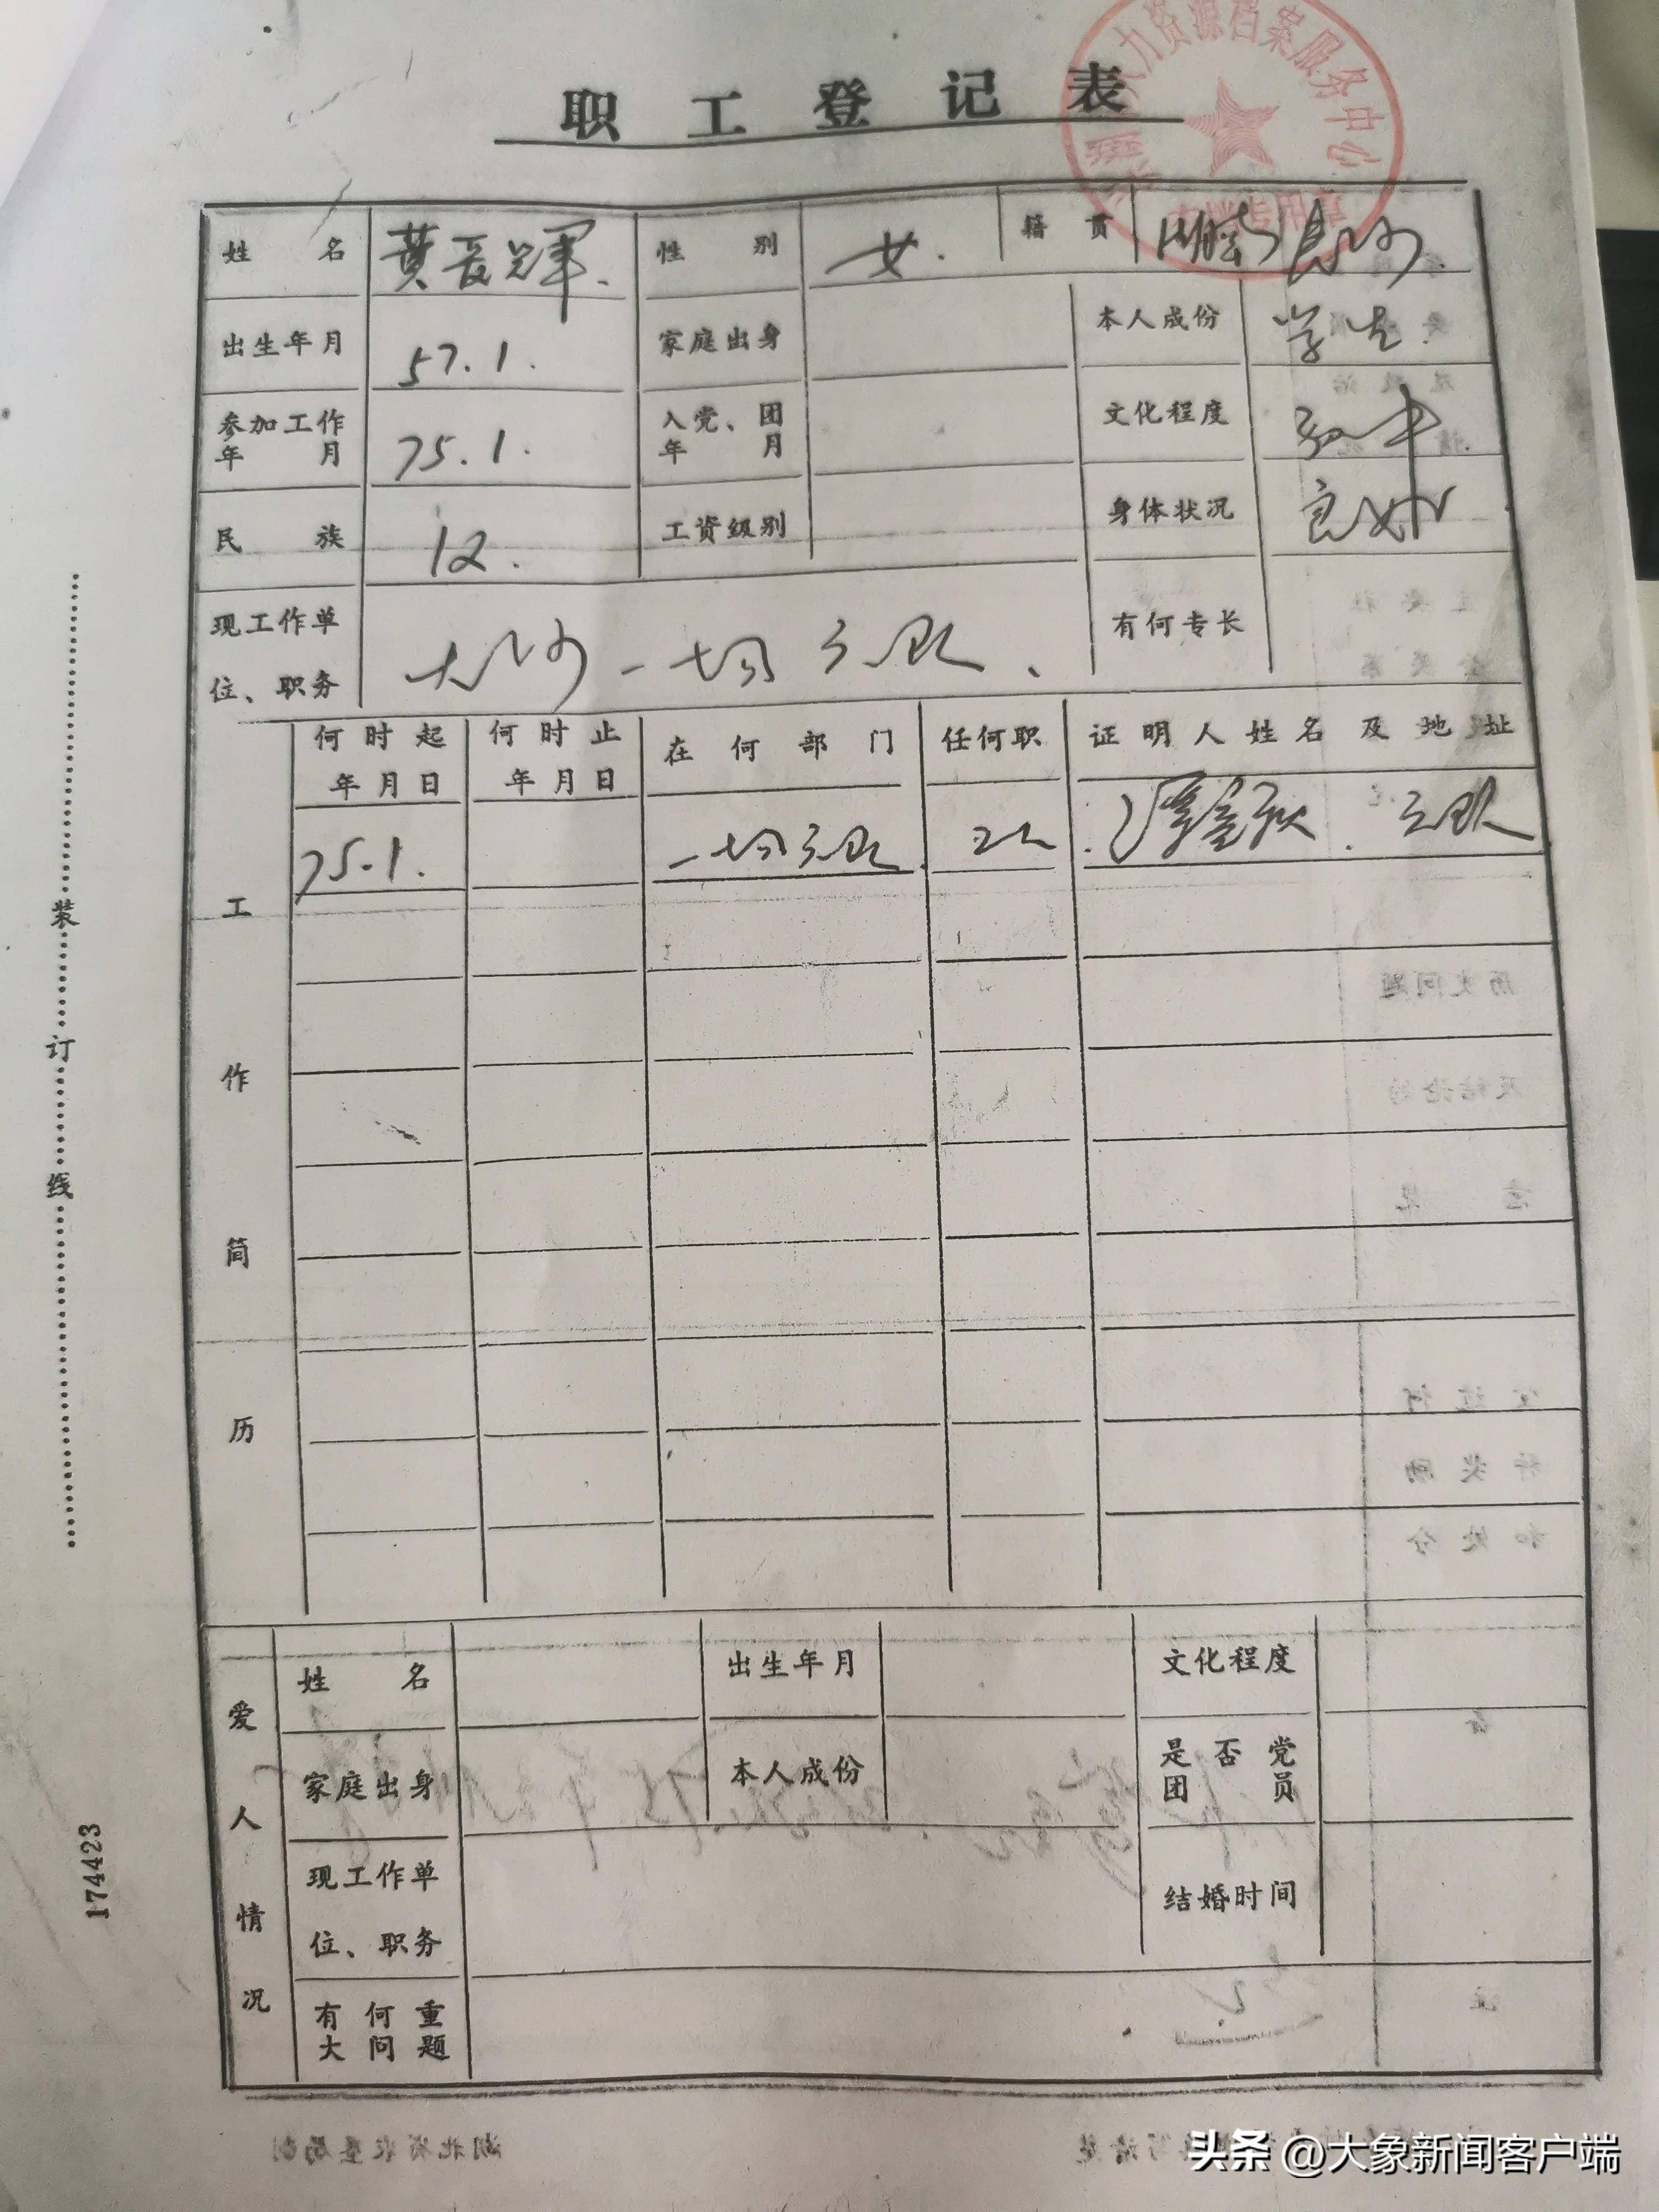 职工登记表
力资源档案服务中心
姓名 黄 性别 女. 籍贯 湖南长沙.
出生年月 57.1. 家庭出身 本人成份 学生
参加工作年月 75.1. 入党、团年月 文化程度 初中
民族 汉. 工资级别 身体状况 良好
现工作单位、职务 大沙一场三队、 有何专长
工作简历
何时起年月日 何时止年月日 在何部门 任何职 证明人姓名及地址
75.1. 一场三队 三队
爱人情况
姓名 出生年月 文化程度
家庭出身 本人成份 是否党团员
现工作单位、职务 结婚时间
有何重大问题
装订线
174423
历史问题
及结论
意见
行奖励
和处分
备
注
湖北省农垦局制
头条 @大象新闻客户端